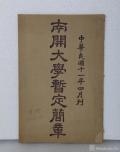 中華民國十一年四月刊
南開大學暫定簡章